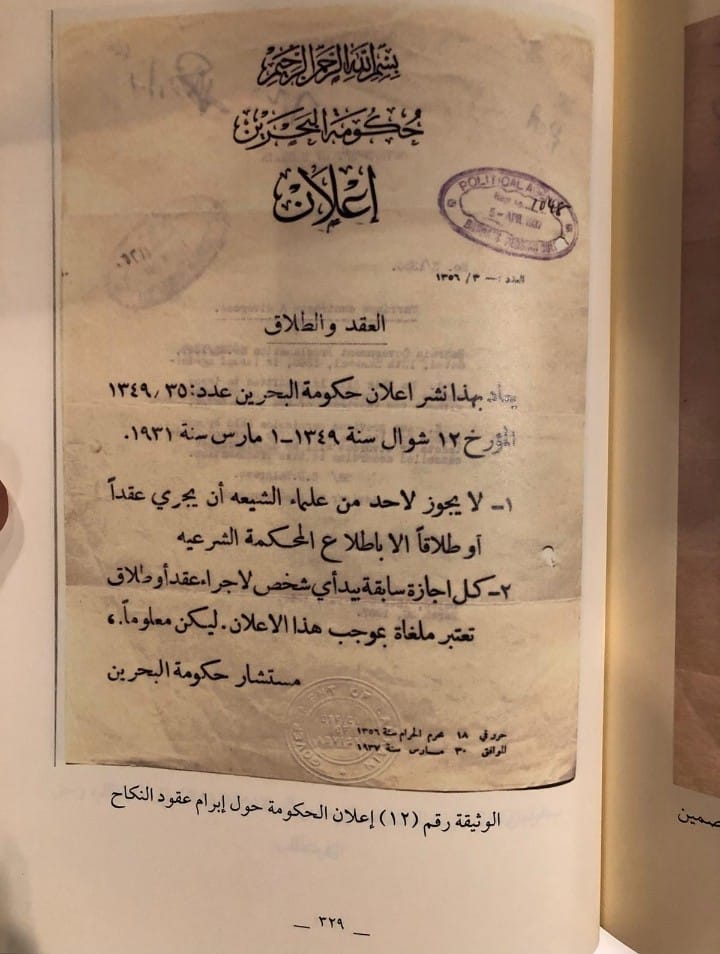 بسم الله الرحمن الرحيم
حكومة البحرين
إعلان
POLITICAL AGENCY
1048
5 - APR 1937
العدد: — ٣ / ١٣٥٦
العقد والطلاق
يعاد بهذا نشر اعلان حكومة البحرين عدد: ٣٥ / ١٣٤٩
المؤرخ ١٢ شوال سنة ١٣٤٩ــ١ مارس سنة ١٩٣١.
١ــ لا يجوز لاحد من علماء الشيعه أن يجري عقداً
أو طلاقاً الا باطلاع المحكمة الشرعيه
٢ــ كل اجازة سابقة بيد أي شخص لاجراء عقد أو طلاق
تعتبر ملغاة بموجب هذا الاعلان. ليكن معلوماً.،
مستشار حكومة البحرين
GOVERNMENT OF BAHRAIN
حرر في ١٨ محرم الحرام سنة ١٣٥٦
الموافق ٣٠ مارس سنة ١٩٣٧
الوثيقة رقم (١٢) إعلان الحكومة حول إبرام عقود النكاح
ـ ٣٢٩ ـ